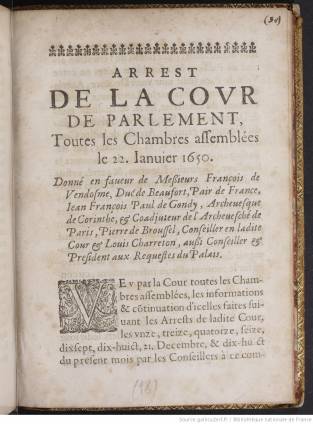 (30)
ARREST
DE LA COVR
DE PARLEMENT,
Toutes les Chambres assemblées
le 22. Ianuier 1650.
Donné en faueur de Messieurs François de
Vendosme, Duc de Beaufort, Pair de France,
Iean François Paul de Gondy, Archeuesque
de Corinthe, & Coadjuteur de l'Archeuesché de
Paris, Pierre de Broussel, Conseiller en ladite
Cour & Louis Charreton, aussi Conseiller &
President aux Requestes du Palais.
VEV par la Cour toutes les Cham-
bres assemblées, les informations
& cõtinuation d'icelles faites sui-
uant les Arrests de ladite Cour,
les vnze, treize, quatorze, seize,
dixsept, dix-huict, 21. Decembre, & dix-huict
du present mois par les Conseillers à ce com-
Source gallica.bnf.fr / Bibliothèque nationale de France